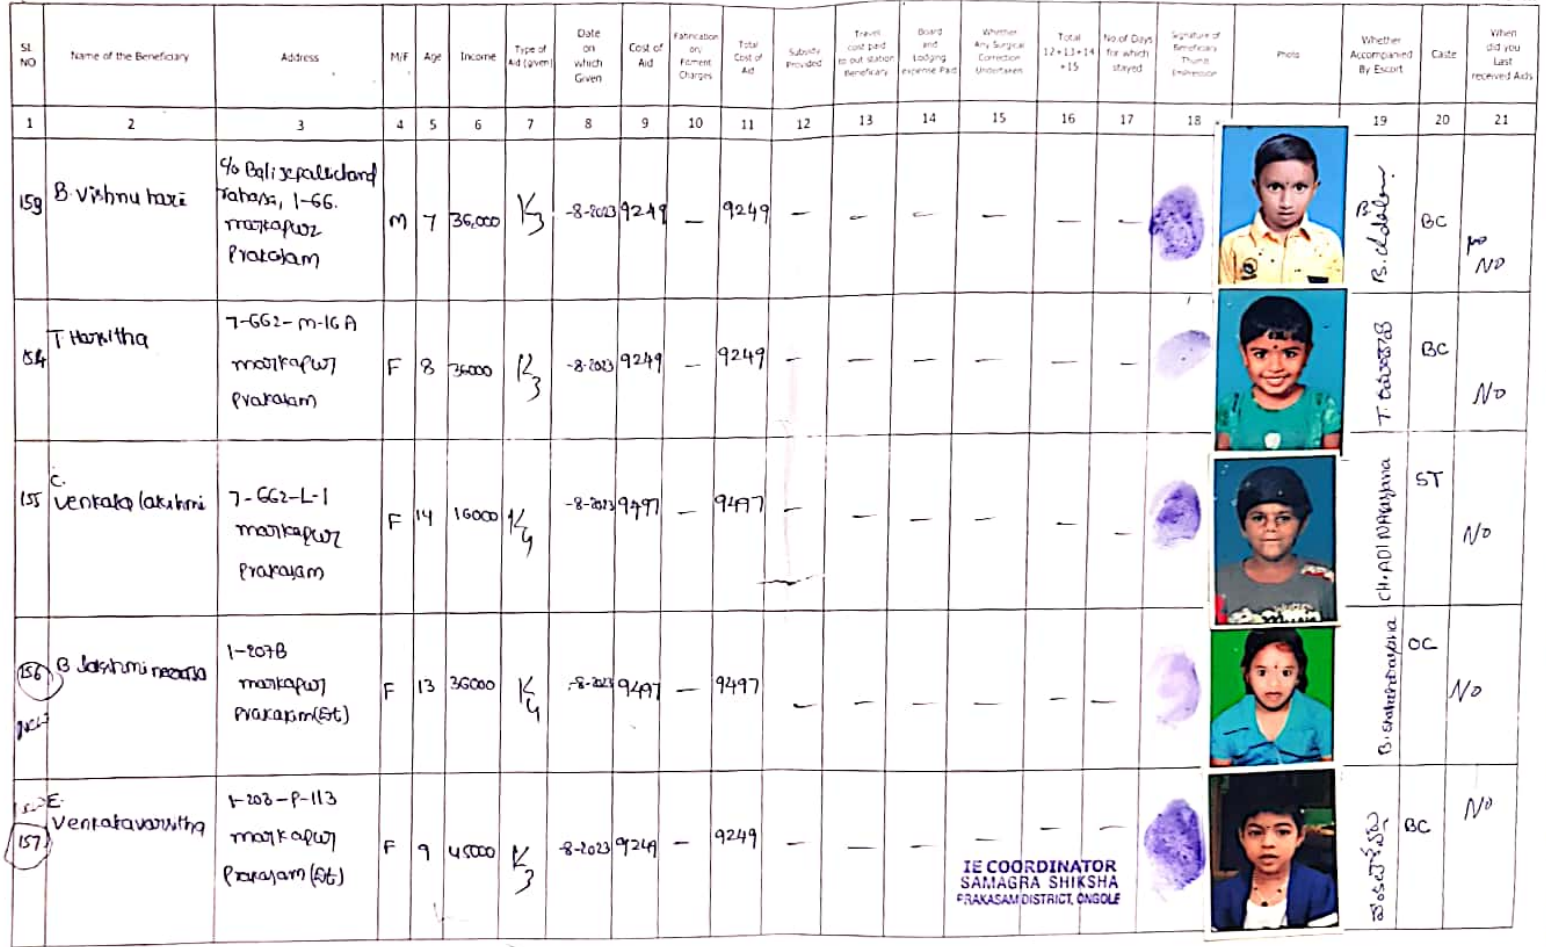 Sl. NO
Name of the Beneficiary
Address
M/F
Age
Income
Type of Aid (given)
Date on which Given
Cost of Aid
Fabrication on/ Fitment Charges
Total Cost of Aid
Subsidy Provided
Travel cost paid to out station Beneficiary
Board and Lodging expense Paid
Whether Any Surgical Correction Undertaken
Total 12+13+14+15
No of Days for which stayed
Signature of Beneficiary Thumb Impression
Photo
Whether Accompanied By Escort
Caste
When did you Last received Aids
1 2 3 4 5 6 7 8 9 10 11 12 13 14 15 16 17 18 19 20 21
B. Vishnu hari
1-66.
markapur
Prakasam
M 7 36,000 K3 -8-2023 9249 — 9249 — — — — — —
BC
NO
154
T. Harsitha
7-662-M-16A
markapur
Prakasam
F 8 36000 K3 -8-2023 9249 — 9249 — — — — — —
BC
NO
155
C. Venkata lakshmi
7-662-L-1
markapur
Prakasam
F 14 16000 K4 -8-2023 9497 — 9497 — — — — — —
ST
NO
156
B
1-207B
markapur
Prakasam (Dt)
F 13 36000 K4 -8-2023 9497 — 9497 — — — — — —
OC
NO
157
E. Venkatavarsitha
1-203-P-113
markapur
Prakasam (Dt)
F 9 45000 K3 -8-2023 9249 — 9249 — — — — — —
BC
NO
IE COORDINATOR
SAMAGRA SHIKSHA
PRAKASAM DISTRICT, ONGOLE